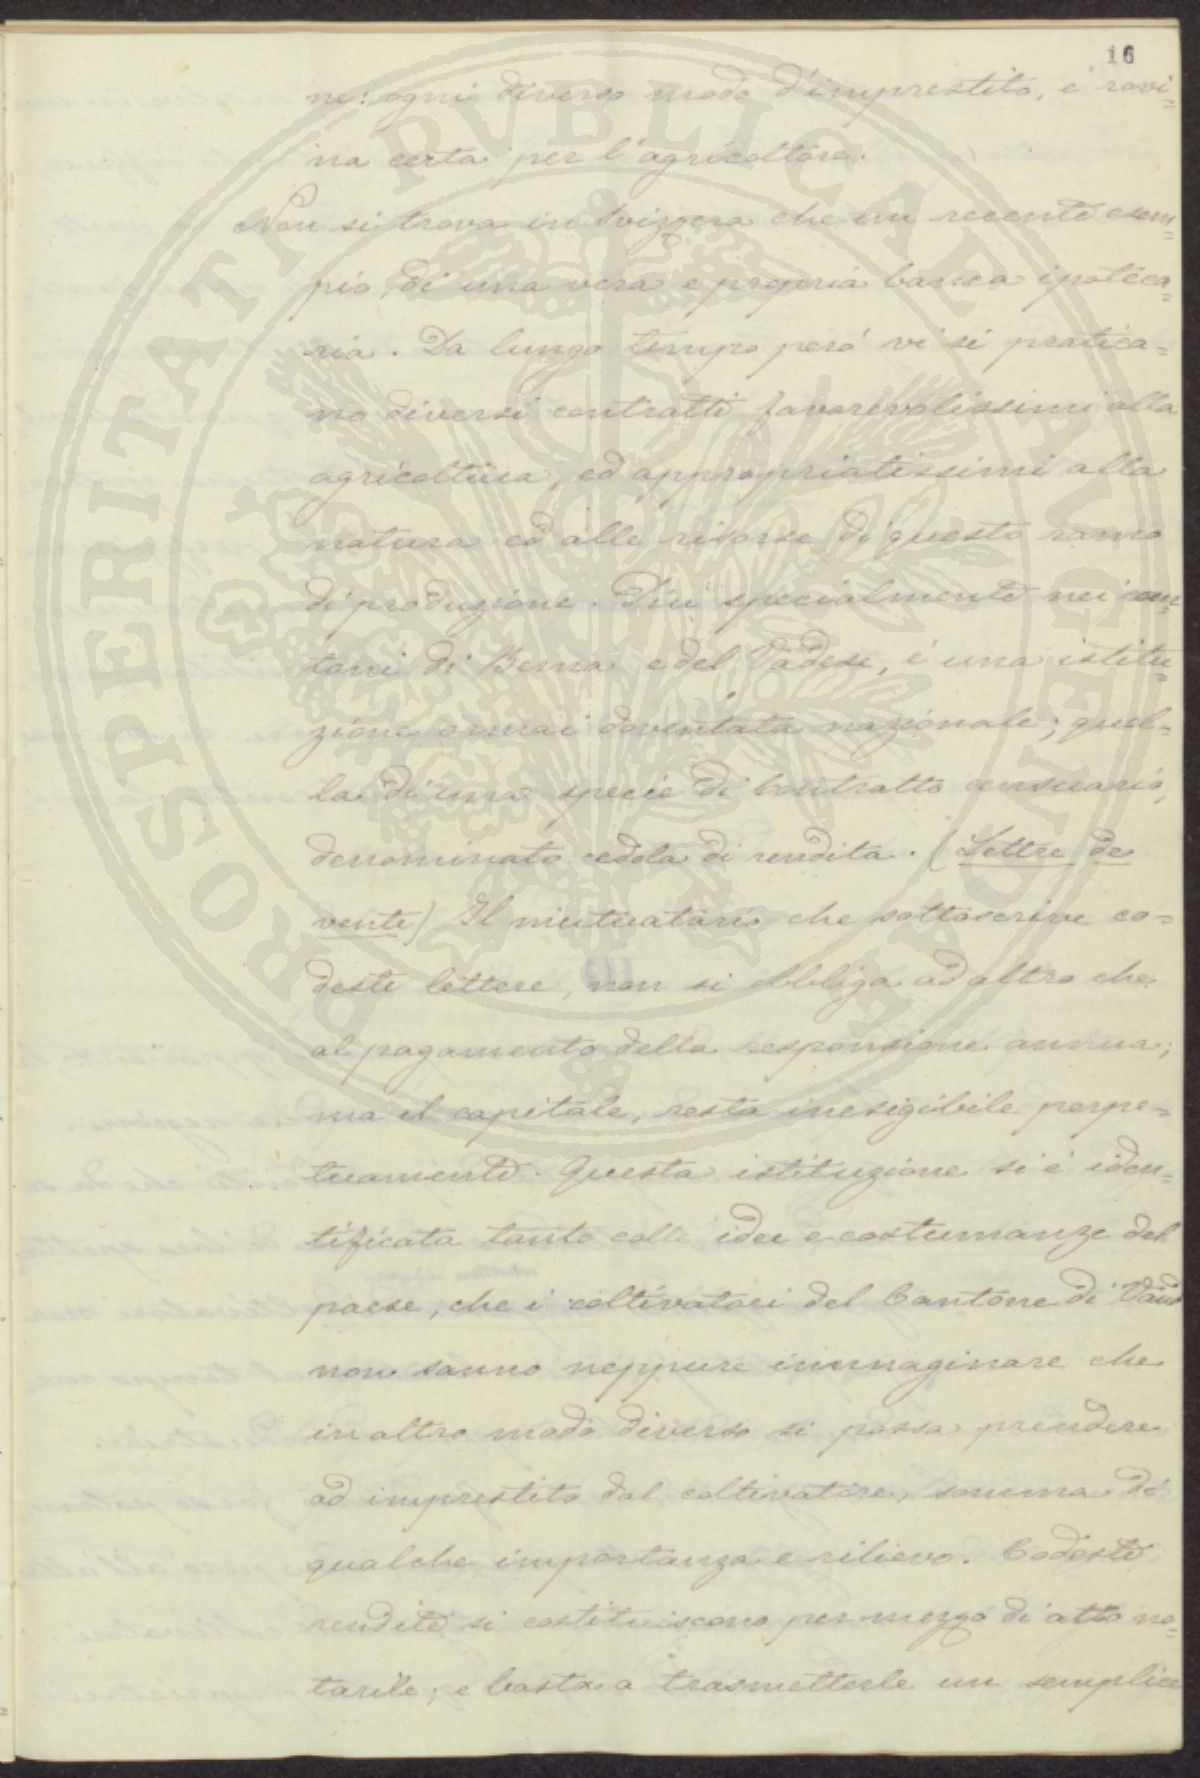 16
ne: ogni diverso modo d'imprestito, é rovi=
na certa per l'agricoltore.
Non si trova in Svizzera che un recente esem=
pio, di una vera e propria banca ipoteca=
ria. Da lungo tempo peró vi si pratica=
no diversi contratti favorevolissimi alla
agricoltura, ed appropriatissimi alla
natura ed alle risorse di questo ramo
di produzione. Piú specialmente nei can=
toni di Berna e del Vadese, é una istitu=
zione ormai doventata nazionale; quel=
la di una specie di Contratto censuario,
denominato cedola di rendita. (Lettre de
vente) Il mutuatario che sottoscrive co=
deste lettere, non si obbliga ad altro che
al pagamento della responsione annua;
ma il capitale, resta inesigibile perpe=
tuamente. Questa istituzione si é iden=
tificata tanto colle idee e costumanze del
paese, che i coltivatori del Cantone di Vaud
non sanno neppure immaginare che
in altro modo diverso si possa prendere
ad imprestito dal coltivatore, somma di
qualche importanza e rilievo. Codeste
rendite si costituiscono per mezzo di atto no=
tarile; e basta a trasmetterle un semplice
PROSPERITATI PVBLICAE AVGENDAE